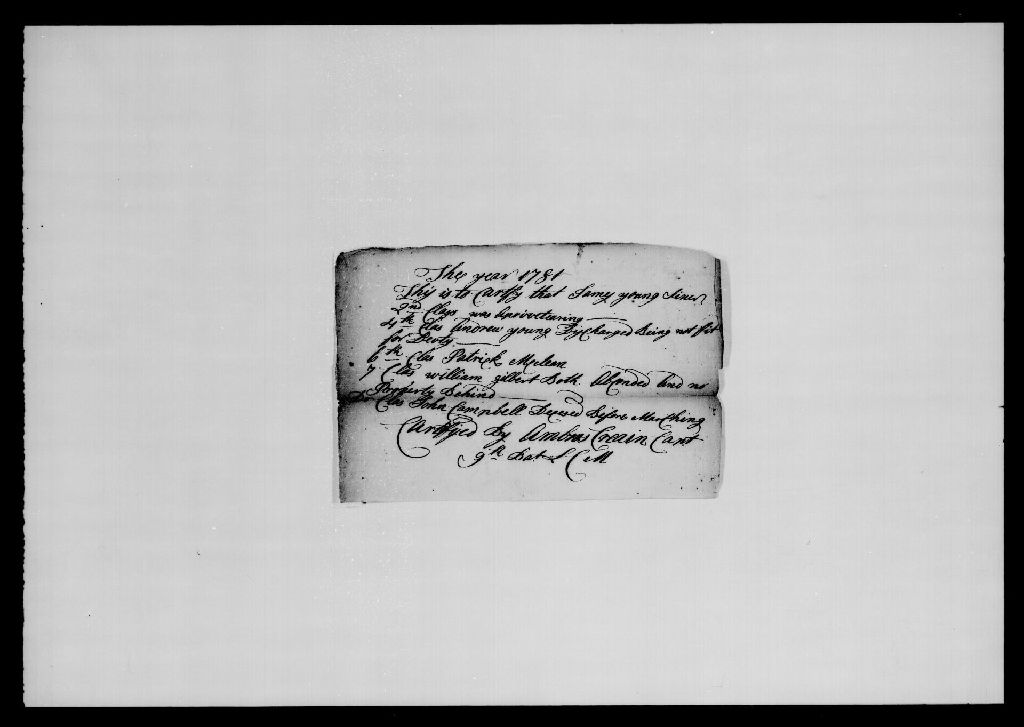 The year 1781
This is to Cartfy that James young Siner
2nd Clays was a privetearing
4th Clas Andrew young Dyscharged being not fit
for Deuty
6th Clas Patrick Mclean
7 Clas william gilbert Both Absonded and no
Property Behind
Clas John Campbell Deseved Before Marching
Cartfyed By Ambros Creain Capt
9th Bat L C M